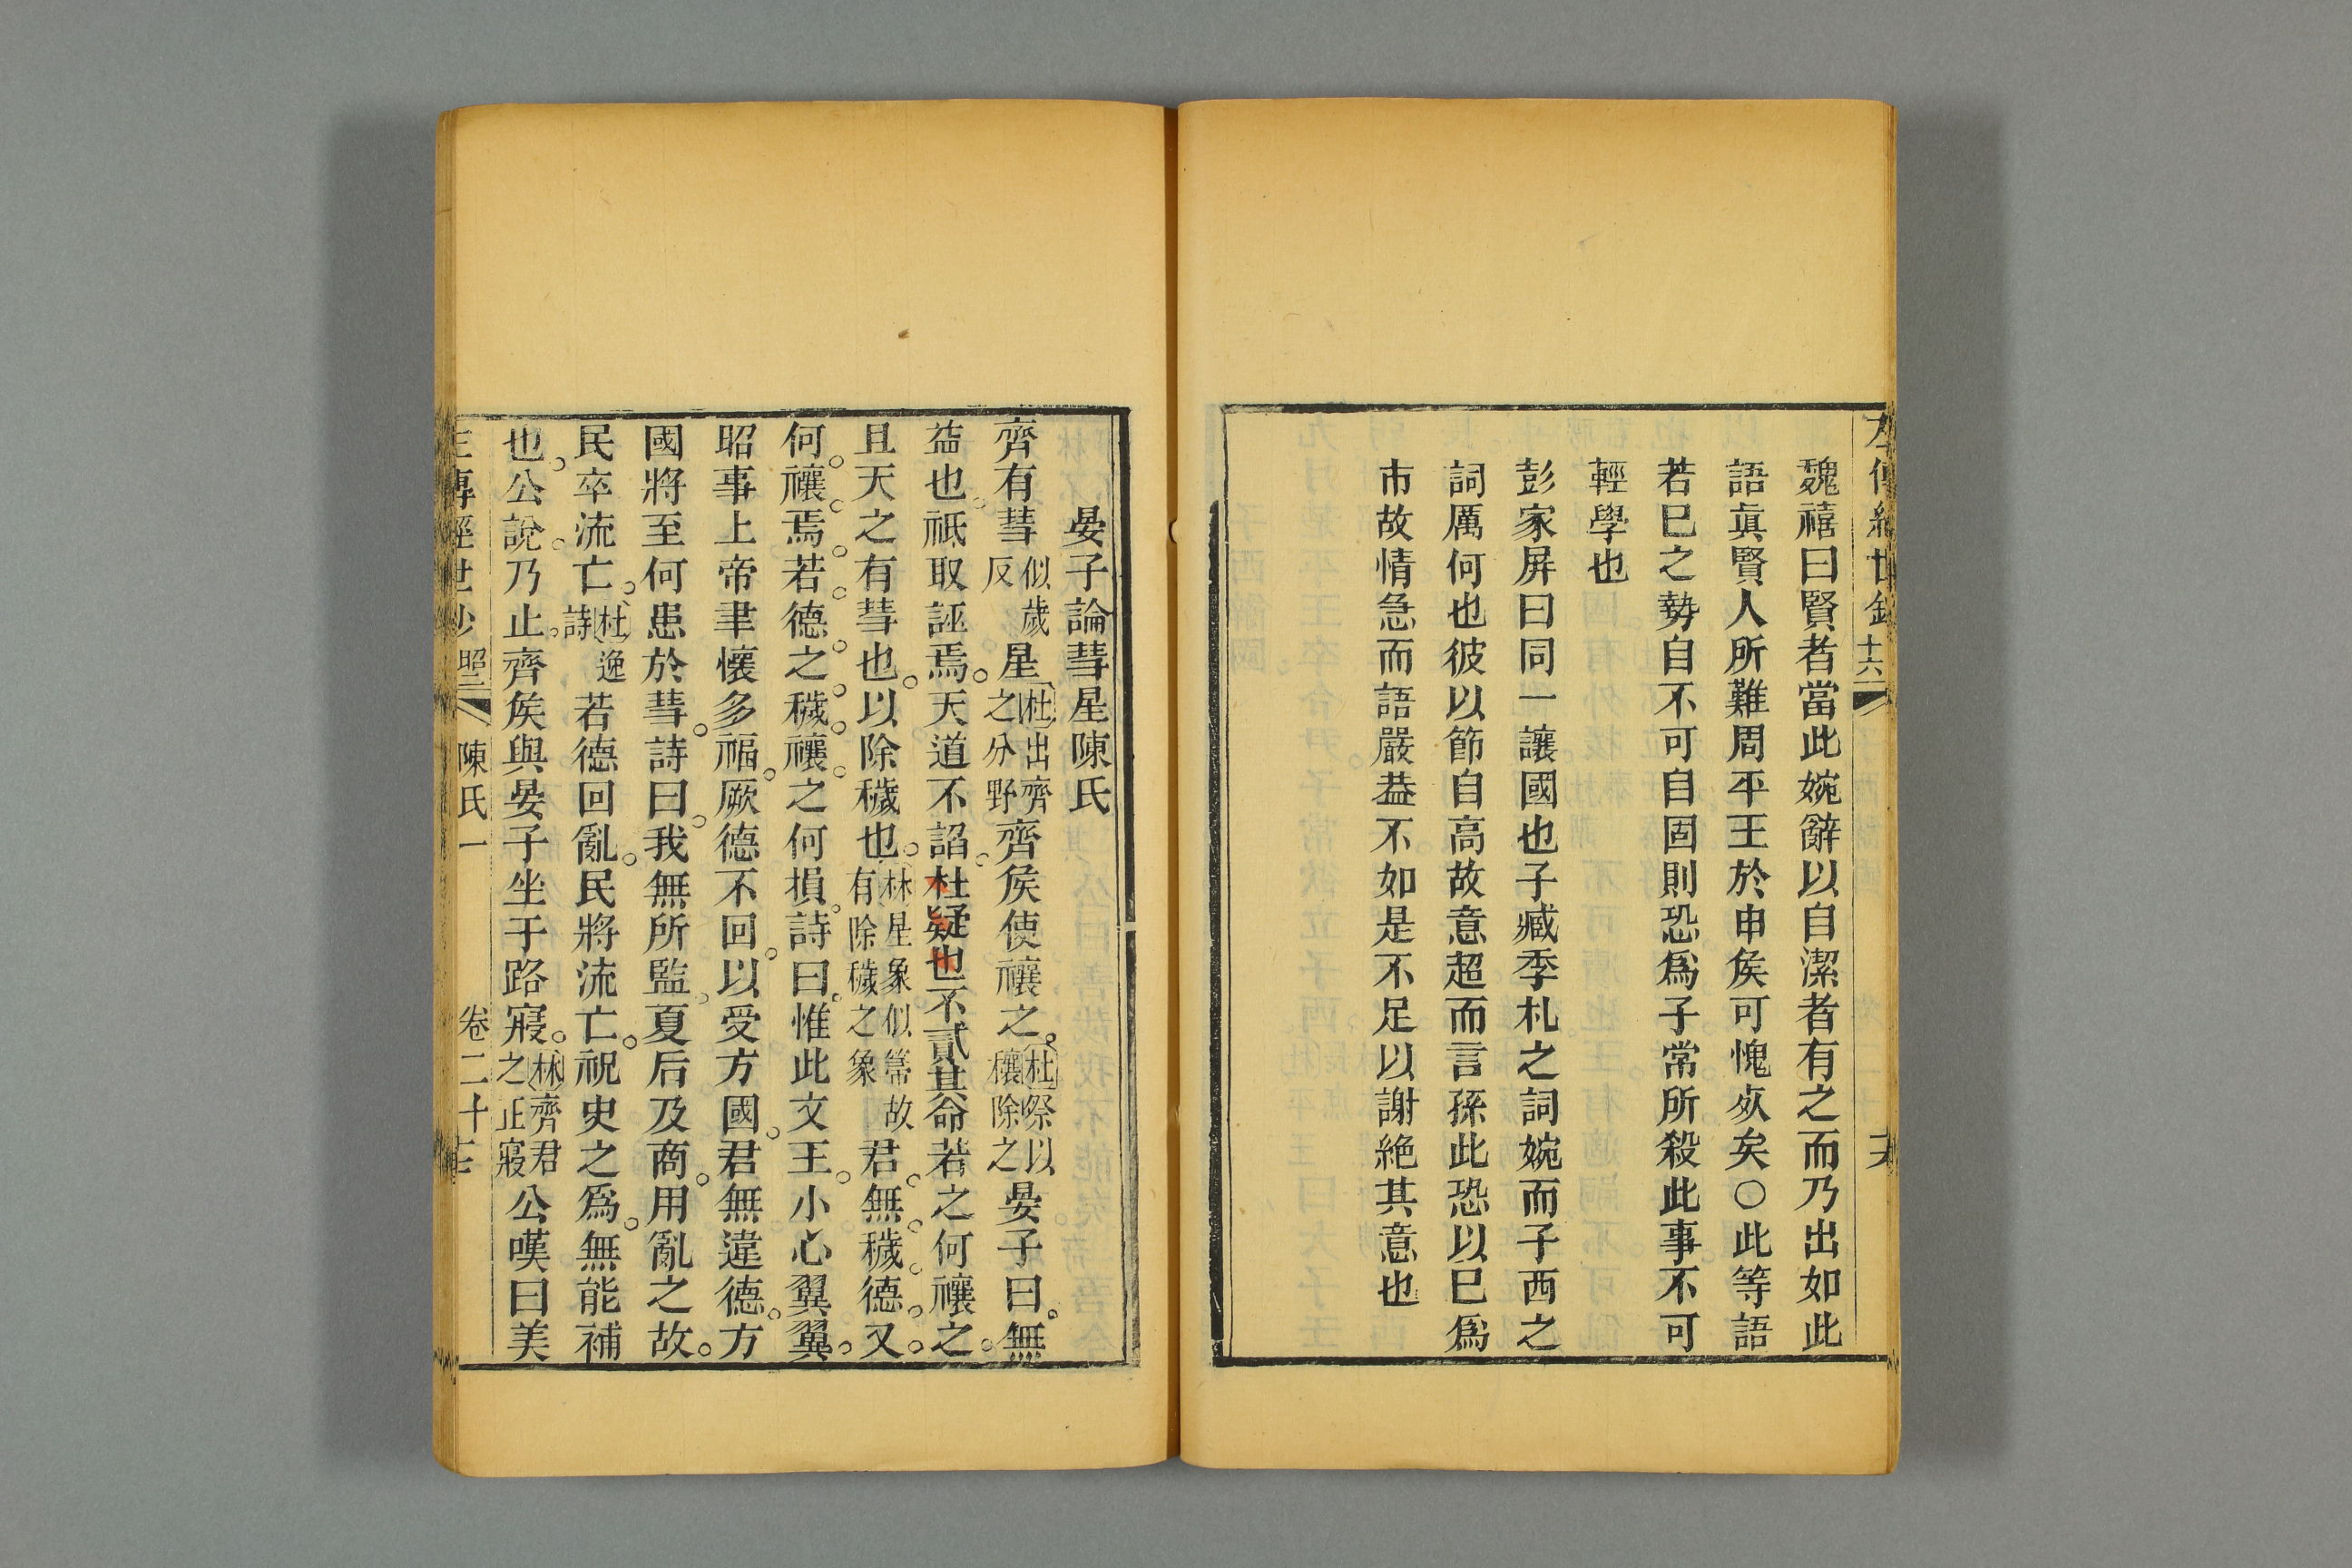 左傳經世鈔 十六
魏禧曰賢者當此婉辭以自潔者有之而乃出如此
語眞賢人所難周平王於申矦可愧夊矣○此等語
若巳之勢自不可自固則恐爲子常所殺此事不可
輕學也
彭家屏曰同一讓國也子臧季札之詞婉而子西之
詞厲何也彼以節自高故意超而言孫此恐以巳爲
市故情急而語嚴葢不如是不足以謝絶其意也
晏子論彗星陳氏
齊有彗似歲反星杜出齊之分野齊矦使禳之杜祭以禳除之晏子曰無
葢也祇取誣焉天道不謟杜疑也不貳其命若之何禳之
且天之有彗也以除穢也林星象似箒故有除穢之象君無穢德又
何禳焉若德之穢禳之何損詩曰惟此文王小心翼翼
昭事上帝聿懷多福厥德不回以受方國君無違德方
國將至何患於彗詩曰我無所監夏后及商用亂之故
民卒流亡杜逸詩若德回亂民將流亡祝史之爲無能補
也公說乃止齊矦與晏子坐于路寢林齊君之正寢公嘆曰美
左傳經世鈔 昭三 陳氏一 卷二十七